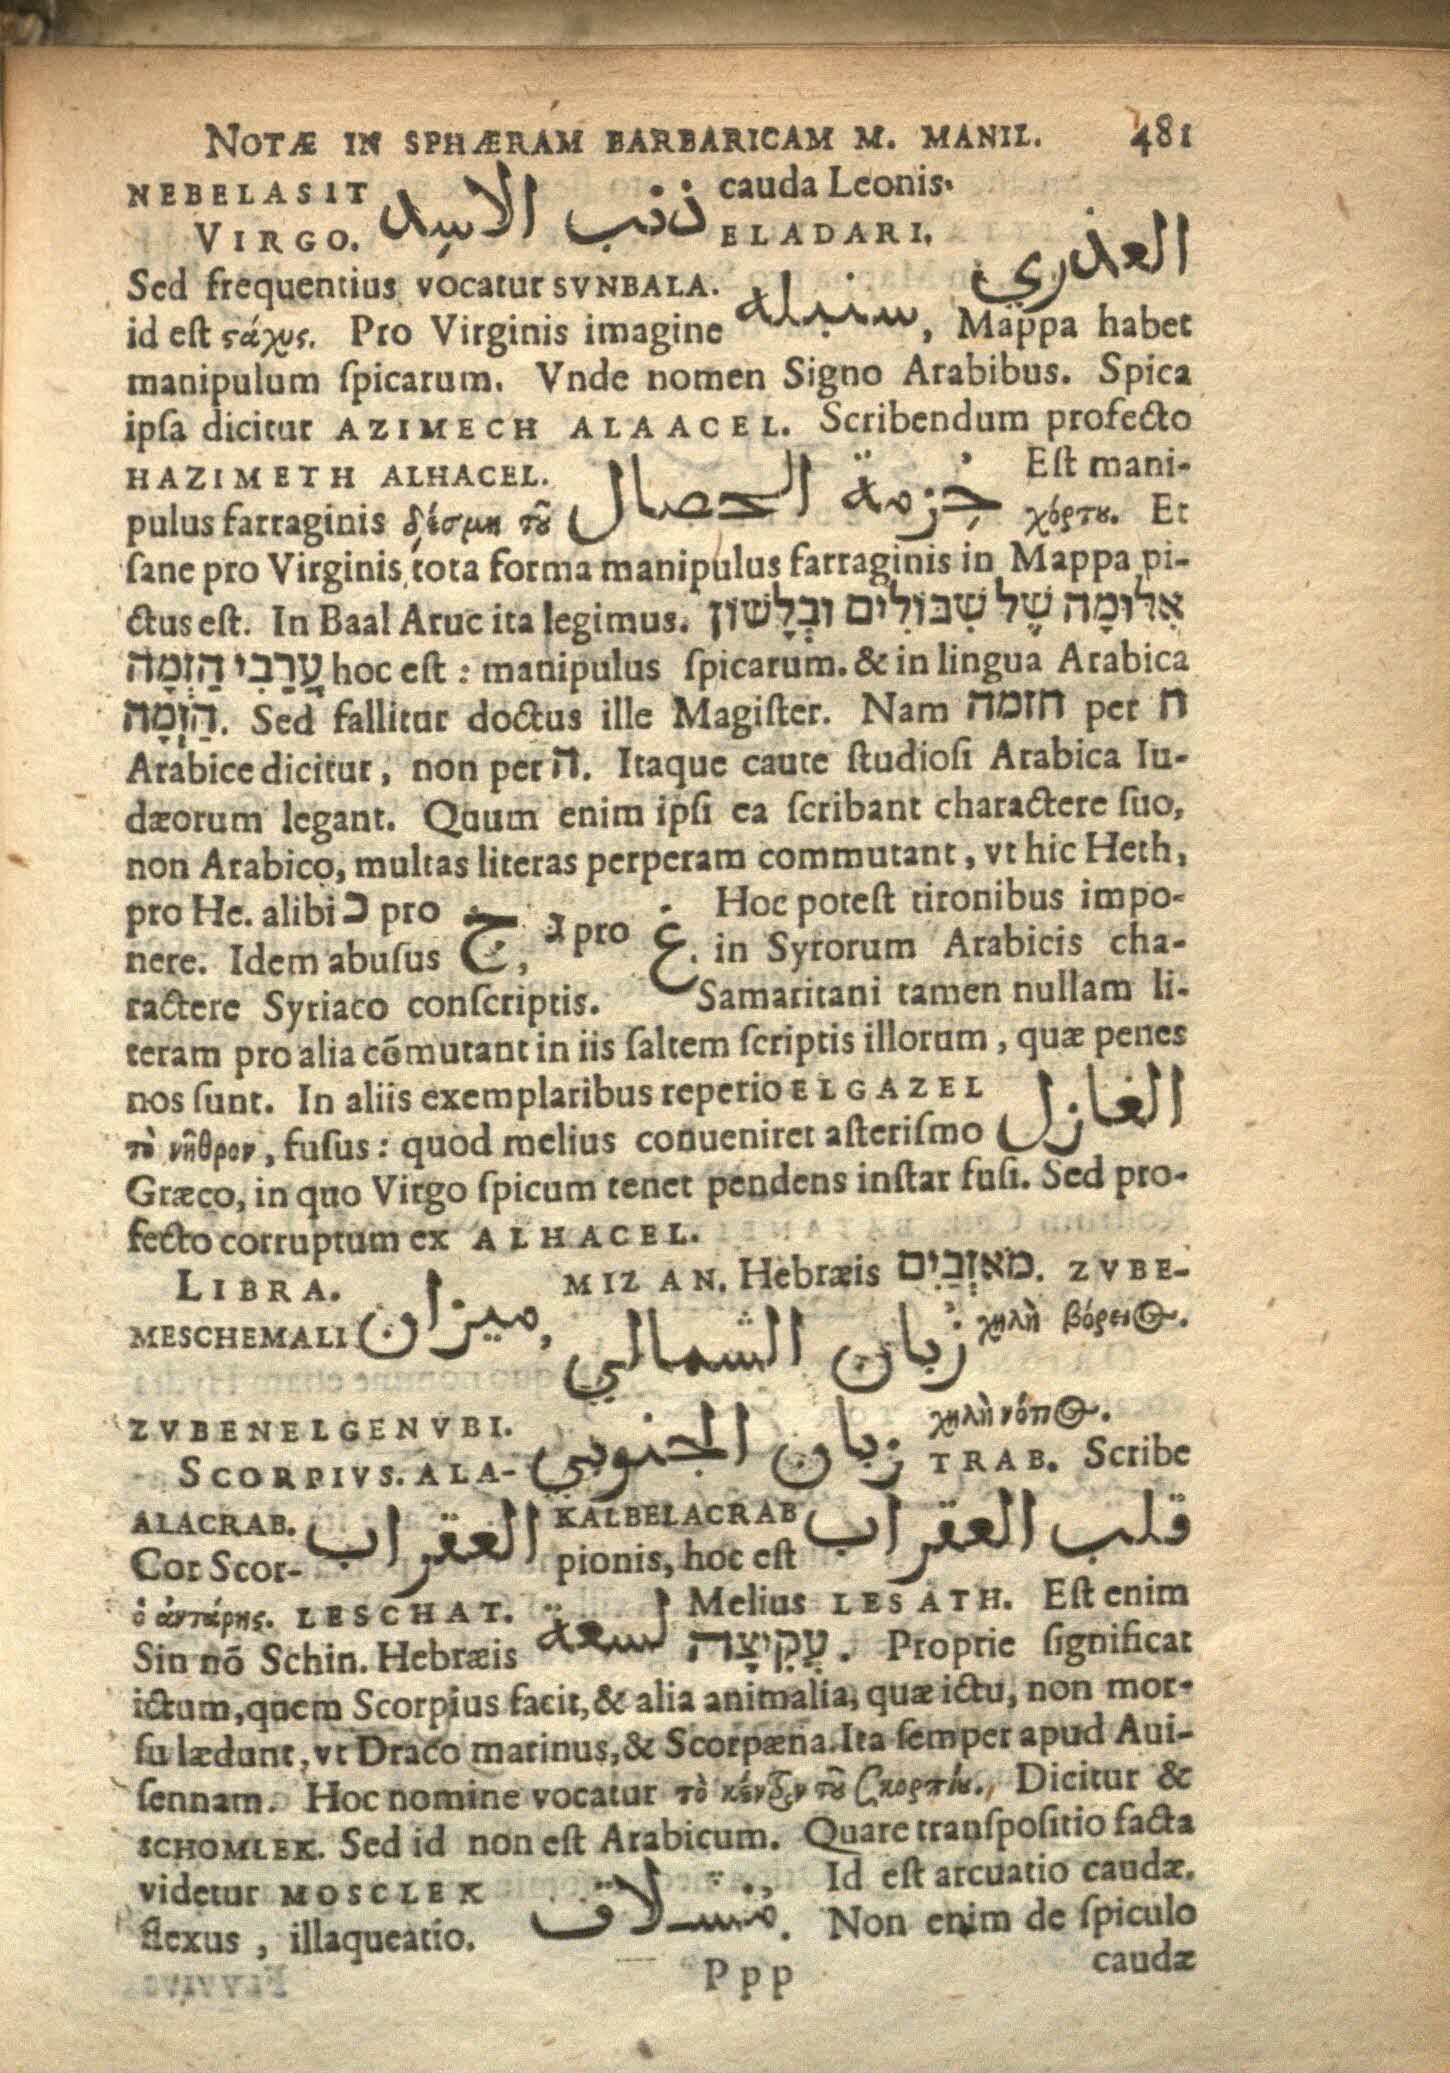 NOTÆ IN SPHÆRAM BARBARICAM M. MANIL. 481
NEBELASIT ذنب الاسد cauda Leonis.
VIRGO. ELADARI. العذري
Sed frequentius vocatur SVNBALA.
id est ςάχυς. Pro Virginis imagine سنبله, Mappa habet
manipulum ſpicarum. Vnde nomen Signo Arabibus. Spica
ipſa dicitur AZIMECH ALAACEL. Scribendum profecto
HAZIMETH ALHACEL. حزمة الحصال Eſt mani-
pulus farraginis δέσμη τȣ͂ χόρτȣ. Et
ſane pro Virginis tota forma manipulus farraginis in Mappa pi-
ctus eſt. In Baal Aruc ita legimus. אֲלוּמָה שֶׁל שִׁבּוֹלִים וּבְלָשׁוֹן
עֲרַבִי הַזְמָה hoc eſt: manipulus ſpicarum. & in lingua Arabica
הַזְמָה. Sed fallitur doctus ille Magiſter. Nam חזמה per ח
Arabice dicitur, non per ה. Itaque caute ſtudioſi Arabica Iu-
dæorum legant. Quum enim ipſi ea ſcribant charactere ſuo,
non Arabico, multas literas perperam commutant, vt hic Heth,
pro He. alibi כ pro خ, ג pro غ. Hoc poteſt tironibus impo-
nere. Idem abuſus in Syrorum Arabicis cha-
ractere Syriaco conſcriptis. Samaritani tamen nullam li-
teram pro alia cōmutant in iis ſaltem ſcriptis illorum, quæ penes
nos ſunt. In aliis exemplaribus reperio ELGAZEL الغازل
τὸ νῆθρον, fuſus: quod melius conueniret aſteriſmo
Græco, in quo Virgo ſpicum tenet pendens inſtar fuſi. Sed pro-
fecto corruptum ex ALHACEL.
LIBRA. ميزان, MIZAN. Hebræis מֹאזְנַיִם. ZVBE-
MESCHEMALI زبان الشمالي χηλὴ βόρειος.
ZVBENELGENVBI. زبان الجنوبي χηλὴ νότιος.
SCORPIVS. ALA- TRAB. Scribe
ALACRAB. العقراب KALBELACRAB قلب العقراب
Cor Scor- pionis, hoc eſt
ὁ ἀντάρης. LESCHAT. لسعة Melius LESATH. Eſt enim
Sin nō Schin. Hebræis עֲקִיצָה. Proprie ſignificat
ictum, quem Scorpius facit, & alia animalia, quæ ictu, non mor-
ſu lædunt, vt Draco marinus, & Scorpæna. Ita ſemper apud Aui-
ſennam. Hoc nomine vocatur τὸ κέντρον τȣ͂ Σκορπίȣ. Dicitur &
SCHOMLEK. Sed id non eſt Arabicum. Quare tranſpoſitio facta
videtur MOSCLEK Id eſt arcuatio caudæ.
flexus, illaqueatio. Non enim de ſpiculo
Ppp caudæ